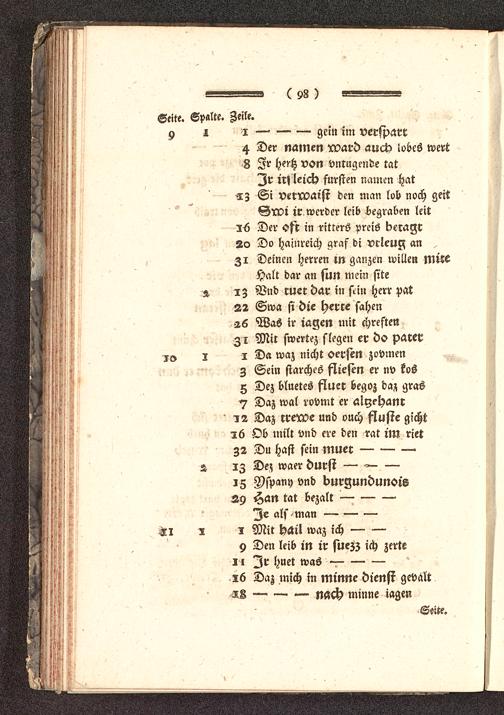 ( 98 )
Seite. Spalte. Zeile.
9 1 1 — — — gein im verspart
4 Der namen ward auch lobes wert
8 Jr hertz von vntugende tat
Jr itsleich fursten namen hat
13 Si verwaist den man lob noch geit
Swi ir werder leib begraben leit
16 Der oft in ritters preis betagt
20 Do hainreich graf di vrleug an
31 Deinen herren in ganzen willen mite
Halt dar an sun mein site
2 13 Vnd tuet dar in sein herr pat
22 Swa si die herte sahen
26 Was ir iagen mit chreften
31 Mit swertez slegen er do pater
10 1 1 Da waz nicht oersen zovmen
3 Sein starches fliesen er nv kos
5 Dez bluetes fluet begoz daz gras
7 Daz wal rovmt er altzehant
12 Daz trewe und ouch fluste gicht
16 Ob milt vnd ere den rat im riet
32 Du hast sein muet — — —
2 13 Dez waer durst — — —
15 Yspany vnd burgundunois
29 Han tat bezalt — — —
Je als man — — — —
11 1 1 Mit hail waz ich — —
9 Den leib in ir suezz ich zerte
11 Jr huet was — — —
16 Daz mich in minne dienst gevalt
18 — — — nach minne iagen
Seite.